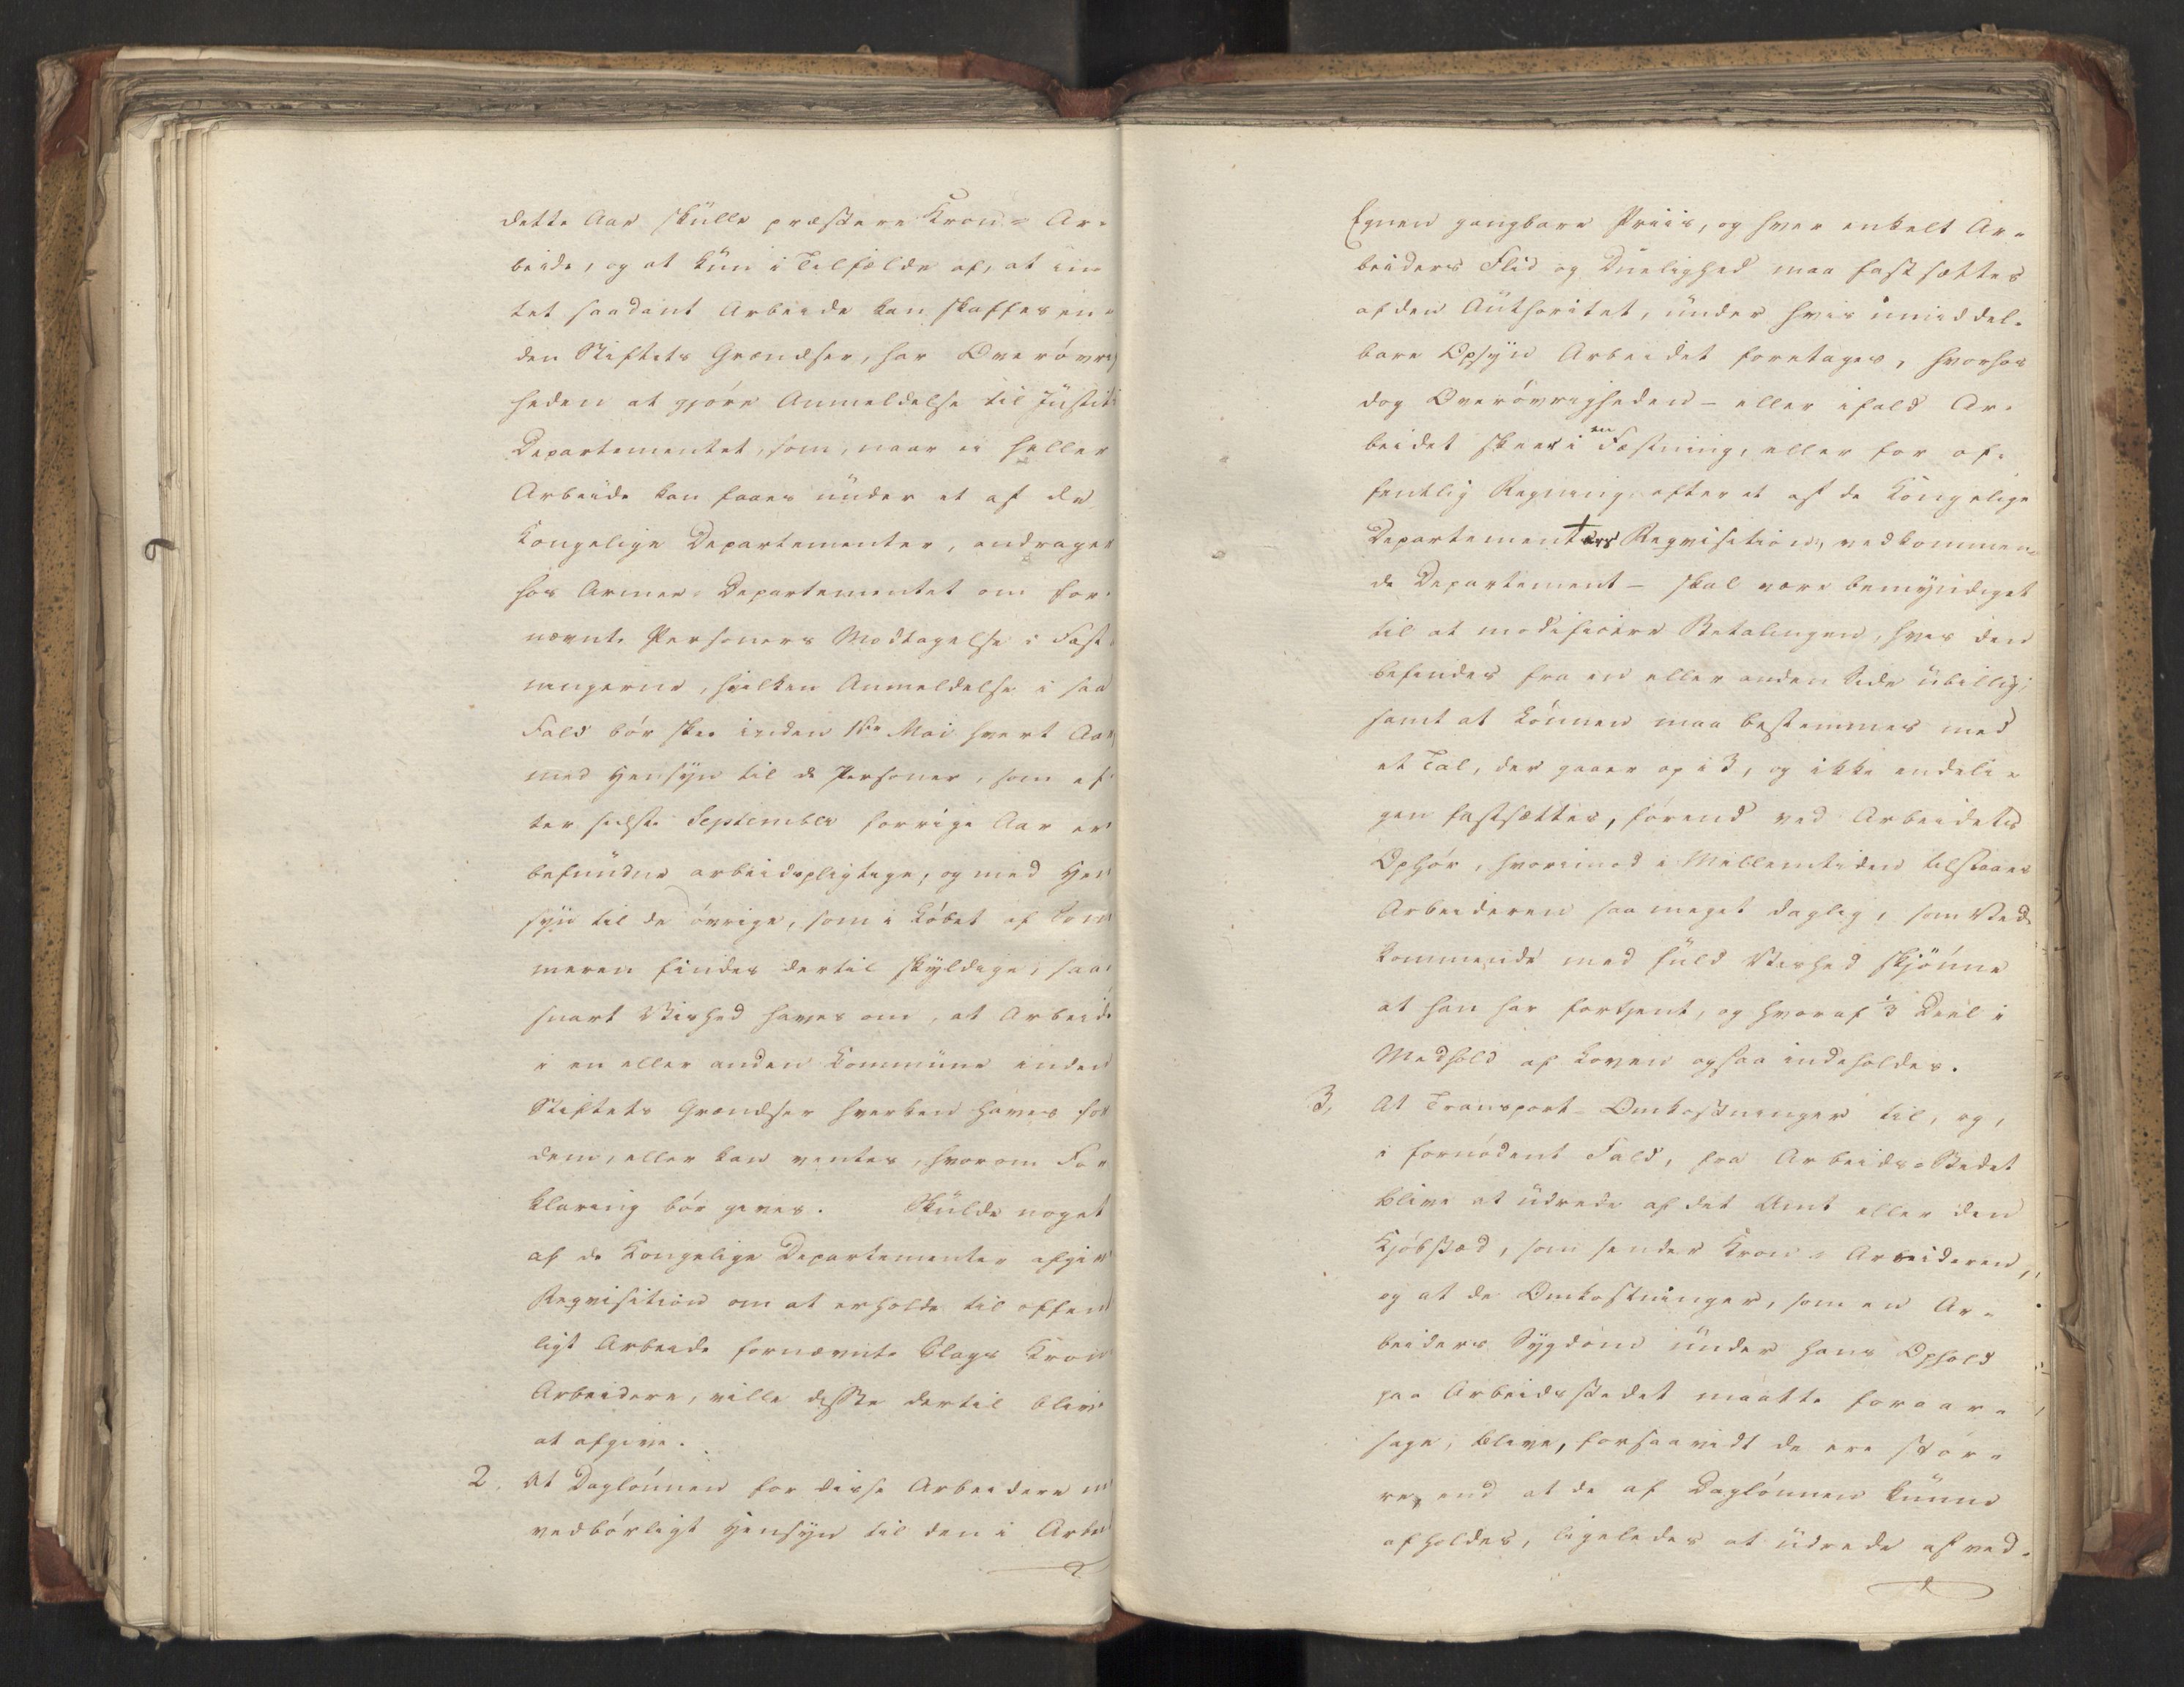 dette Aar skulle præstere Kron- Ar-
beide, og at kun i Tilfælde af, at in-
tet saadant Arbeide kan skaffes in-
den Stiftets Grændser, har Overøvrig
heden at gjøre Anmeldelse til Justits
Departementet, som, naar ei heller
Arbeide kan faaes under et af de
Kongelige Departementer, andrager
hos Armee-Departementet om for-
nævnte Personers Modtagelse i Fæst
ningerne, hvilken Anmeldelse i saa
Fald bør skee inden 1ste Mai hvert Aar,
med Hensyn til de Personer, som ef-
ter sidste September forrige Aar er
befundne arbeidspligtige, og med Hen
syn til de øvrige, som i Løbet af Som
meren findes dertil skyldige, saa-
snart Vished haves om, at Arbeide
i en eller anden Kommune inden
Stiftets Grændser hverken haves for
dem, eller kan ventes, hvorom For
klaring bør gives. Skulde noget
af de Kongelige Departementer afgive
Reqvisition om at erholde til offent
ligt Arbeide fornævnte Slags Kron
Arbeidere, ville disse dertil blive
at afgive.
2. At Daglønnen for disse Arbeidere m
vedbørligt Hensyn til den i Arbei
Egnen gangbare Priis, og hver enkelt Ar-
beiders Flid og Duelighed maa fastsættes
af den Authoritet, under hvis umiddel-
bare Opsyn Arbeidet foretages, hvorhos
dog Overøvrigheden - eller ifald Ar-
beidet skeer i en Fæstning, eller for of-
fentlig Regning efter et af de Kongelige
Departementers Reqvisition, vedkommen-
de Departement - skal være bemyndiget
til at modificere Betalingen, hvis den
befindes fra en eller anden Side ubillig;
samt at Lønnen maa bestemmes med
et Tal, der gaaer op i 3, og ikke endeli-
gen fastsættes, førend ved Arbeidets
Ophør, hvorimod i Mellemtiden tilstaaes
Arbeideren saa meget daglig, som Ved
kommende med fuld Vished skjønne
at han har fortjent, og hvoraf 1/3 Deel i
Medhold af Loven ogsaa indeholdes.
3. At Transport-Omkostninger til, og,
i fornødent Fald, fra Arbeids-Stedet
blive at udrede af det Amt eller den
Kjøbstæd, som sender Kron-Arbeideren,
og at de Omkostninger, som en Ar-
beiders Sygdom under hans Ophold
paa Arbeidsstedet maatte foraar-
sage, blive, forsaavidt de ere stør-
re, end at de af Daglønnen kunne
afholdes, ligeledes at udrede af ved-